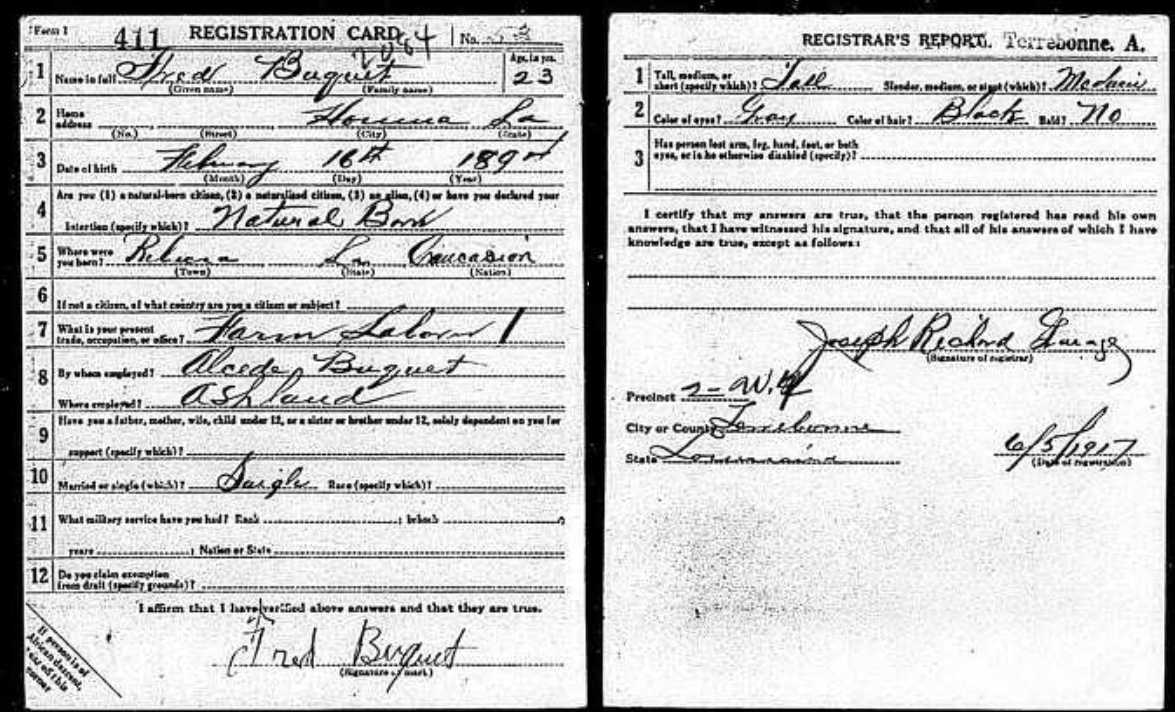 Form 1 411 REGISTRATION CARD 2084 No. 53
1 Name in full Fred Buquet Age, in yrs. 23
(Given name) (Family name)
2 Home address Houma La
(No.) (Street) (City) (State)
3 Date of birth February 16th 1894
(Month) (Day) (Year)
Are you (1) a natural-born citizen, (2) a naturalized citizen, (3) an alien, (4) or have you declared your
4 intention (specify which)? Natural Born
5 Where were you born? La Caucasion
(Town) (State) (Nation)
6 If not a citizen, of what country are you a citizen or subject?
7 What is your present trade, occupation, or office? Farm Labor
8 By whom employed? Alcede Buquet
Where employed? Ashland
9 Have you a father, mother, wife, child under 12, or a sister or brother under 12, solely dependent on you for
support (specify which)?
10 Married or single (which)? Single Race (specify which)?
11 What military service have you had? Rank ; branch
years ; Nation or State
12 Do you claim exemption from draft (specify grounds)?
I affirm that I have verified above answers and that they are true.
Fred Buquet
(Signature or mark)
If person is of
African descent,
corner
REGISTRAR'S REPORT. Terrebonne. A.
1 Tall, medium, or short (specify which)? Tall Slender, medium, or stout (which)? Medium
2 Color of eyes? Gray Color of hair? Black Bald? No
3 Has person lost arm, leg, hand, foot, or both eyes, or is he otherwise disabled (specify)?
I certify that my answers are true, that the person registered has read his own
answers, that I have witnessed his signature, and that all of his answers of which I have
knowledge are true, except as follows:
Joseph Richard
(Signature of registrar)
Precinct 2-
City or County Terrebonne
State Louisiana
6/5/1917
(Date of registration)